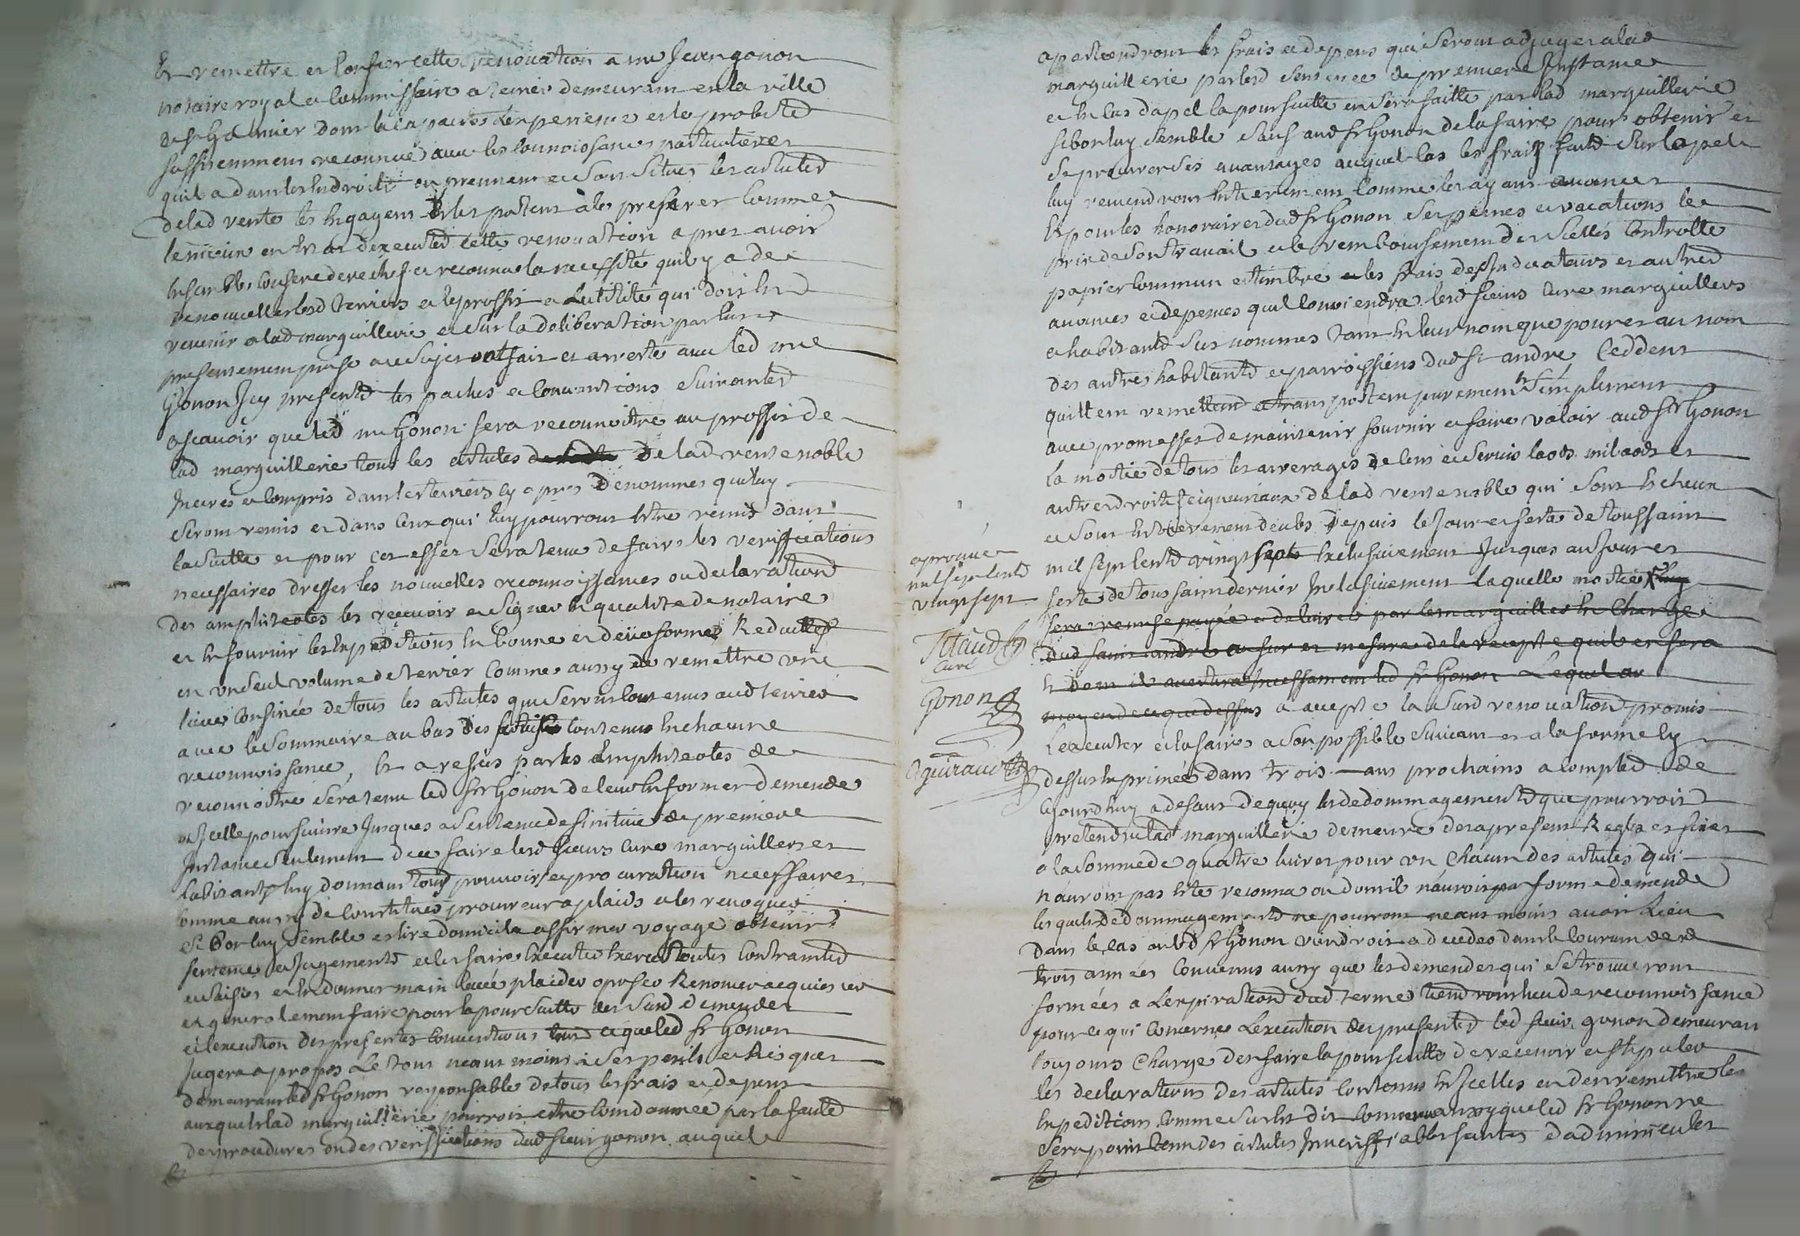 et remettre et confier cette renovation a me Jean gonon
notaire royal et Commissaire a terriers demeurant en la ville
de st Galmier dont la capacité l'experience et la probité
suffisemment reconnue avec les connoissances particulieres
qu'il a dans les endroits ou prennent et sont situes les articles
de lad vente les engagent et les portent a le preferer comme
ensemble conferé de ce chef et reconnu la necessité qu'il y a de
renouveller lesd terriers et le proffit et l'utilité qui doit en
revenir a lad marguillerie et sur la deliberation par eux
presentement prise a ce sujet ont fait et arreté avec led me
Gonon Icy present les pactes et conventions suivantes
a scavoir que led me Gonon sera reconnoitre au proffit de
lad marguillerie tous les articles de lad rente noble
inserés et compris dans les terriers cy apres denommes qui luy
seront remis et dans ceux qui luy pourront etre remis dans
la suitte et pour cet effet sera tenu de faire les veriffications
necessaires dresser les nouvelles reconnoissances ou declarations
des amphiteotes les recevoir et signer en qualité de notaire
et en fournir les expeditions en bonne et deüe forme Reduittes
en un seul volume de terrier comme aussy de remettre une
lieve confinée de tous les articles qui seront contenus aud terrier
avec le sommaire au bas des contenus en chacune
reconnoissance, et a refus par les emphiteotes de
reconnoitre sera tenu led sr Gonon de leur en former demende
et Icelle poursuivre jusques a sentence definitive de premiere
Instance seulement de ce faire lesd sieurs Curé marguilliers et
habitants luy donnant tout pouvoir et procuration necessaires
comme aussy de constituer procureur a plaids et les revoquer
si bon luy semble eslire domicile affirmer voyage obtenir
sentences et jugements et les faire executer toutes contraintes
et saisies et en donner main levée plaider opposer Renoncer acquiescer
et generalement faire pour la poursuitte des susd demendes
et l'execution des presentes conventions tout ce que led sr Gonon
jugera a propos le tout neant moins a ses perils et risques
demeurant led sr Gonon responsable de tous les frais et depens
auxquels lad marguillerie pourroit etre condamnée par la faute
des procedures ou des veriffications dud sieur gonon auquel
apartiendront les frais et depens qui seront adjuges a lad
marguillerie par lesd sentences de premiere Instance
et en cas d'apel la poursuitte en sera faitte par lad marguillerie
si bon luy semble sauf aud sr Gonon de la faire pour obtenir et
se procurer ses avantages auquel cas les frais faits sur l'apel
luy reviendront entierement comme les ayant avances
Et pour les honoraires dud sr Gonon ses peines et vacations le
prix de son travail et le remboursement des scelles Controlle
papier commun et timbre et les frais des Indicateurs et autres
avances et depences qu'il conviendra lesd sieurs Curé marguilliers
et habitants sus nommes tant en leur nom que pour et au nom
des autres habitants et parroissiens dud st andré, Ceddent
quittent remettent et transportent purement et simplement
avec promesses de maintenir fournir et faire valoir aud sr Gonon
la moitié de tous les arrerages de cens et servis laods milaods et
autres droits seigneuriaux de lad rente noble qui sont echeus
et sont entierement deubs depuis le jour et feste de toussaint
mil sept cents vingt sept exclusivement jusques au jour et
feste de toussaint dernier Inclusivement laquelle moitié
sera remise payée et delivrée par le marguillier en Charge
dud saint andré au fur et mesure de la recepte qu'il en fera
et dont il avertira incessament led sr Gonon Lequel au
moyen de ce que dessus a accepté la susd renovation promis
l'executer et la faire a son possible suivant et a la forme cy
dessus exprimée dans trois ans prochains a compter de
aujourd'huy a defaut de quoy les dedommagements que pourroit
pretendre lad marguillerie demeure des a present Reglés et fixés
a la somme de quatre livres pour un chacun des articles qui
n'auront pas été reconnu ou dont il n'auroit pas formé demende
lesquels dedommagements ne pourront neant moins avoir Lieu
Dans le cas ou led sr Gonon viendroit a deceder dans le courant desd
trois années Convenus aussy que les demendes qui se trouveront
formées a l'expiration dud terme tiendront lieu de reconnoissance
pour ce qui concerne l'execution des presentes led sieur gonon demeurant
toujours chargé d'en faire la poursuitte de recevoir et stipuler
les declarations des articles contenus en Icelles et d'en remettre les
expeditions comme sus est dit convenu aussy que led sr Gonon ne
sera point tenu des articles Inveriffiables fautes d'adminicules
aprouvé
mil sept cents
vingt sept
curé
Gonon
aguiraud